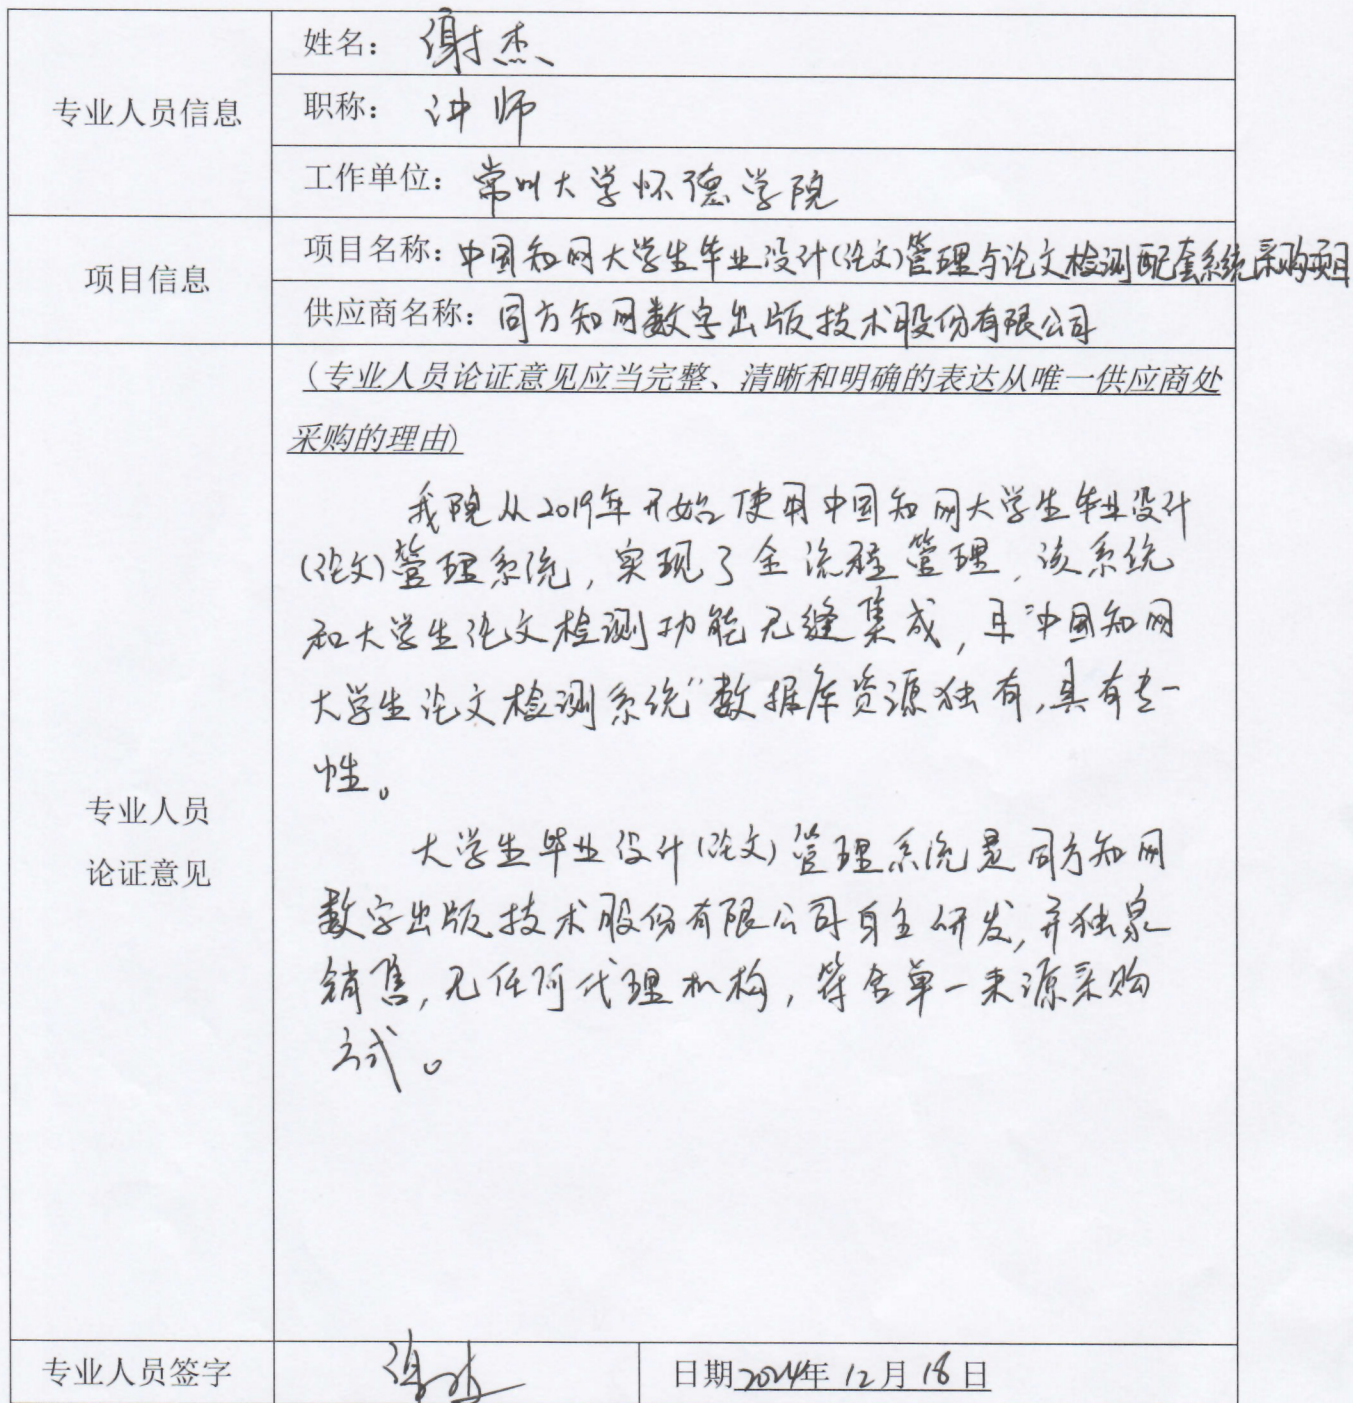 专业人员信息
姓名：谢杰
职称：讲师
工作单位：常州大学怀德学院
项目信息
项目名称：中国知网大学生毕业设计(论文)管理与论文检测配套系统采购项目
供应商名称：同方知网数字出版技术股份有限公司
专业人员
论证意见
(专业人员论证意见应当完整、清晰和明确的表达从唯一供应商处
采购的理由)
我院从2019年开始使用中国知网大学生毕业设计
(论文)管理系统，实现了全流程管理，该系统
和大学生论文检测功能无缝集成，且“中国知网
大学生论文检测系统”数据库资源独有，具有专一
性。
大学生毕业设计(论文)管理系统是同方知网
数字出版技术股份有限公司自主研发，并独家
销售，无任何代理机构，符合单一来源采购
方式。
专业人员签字
谢杰
日期2024年12月18日